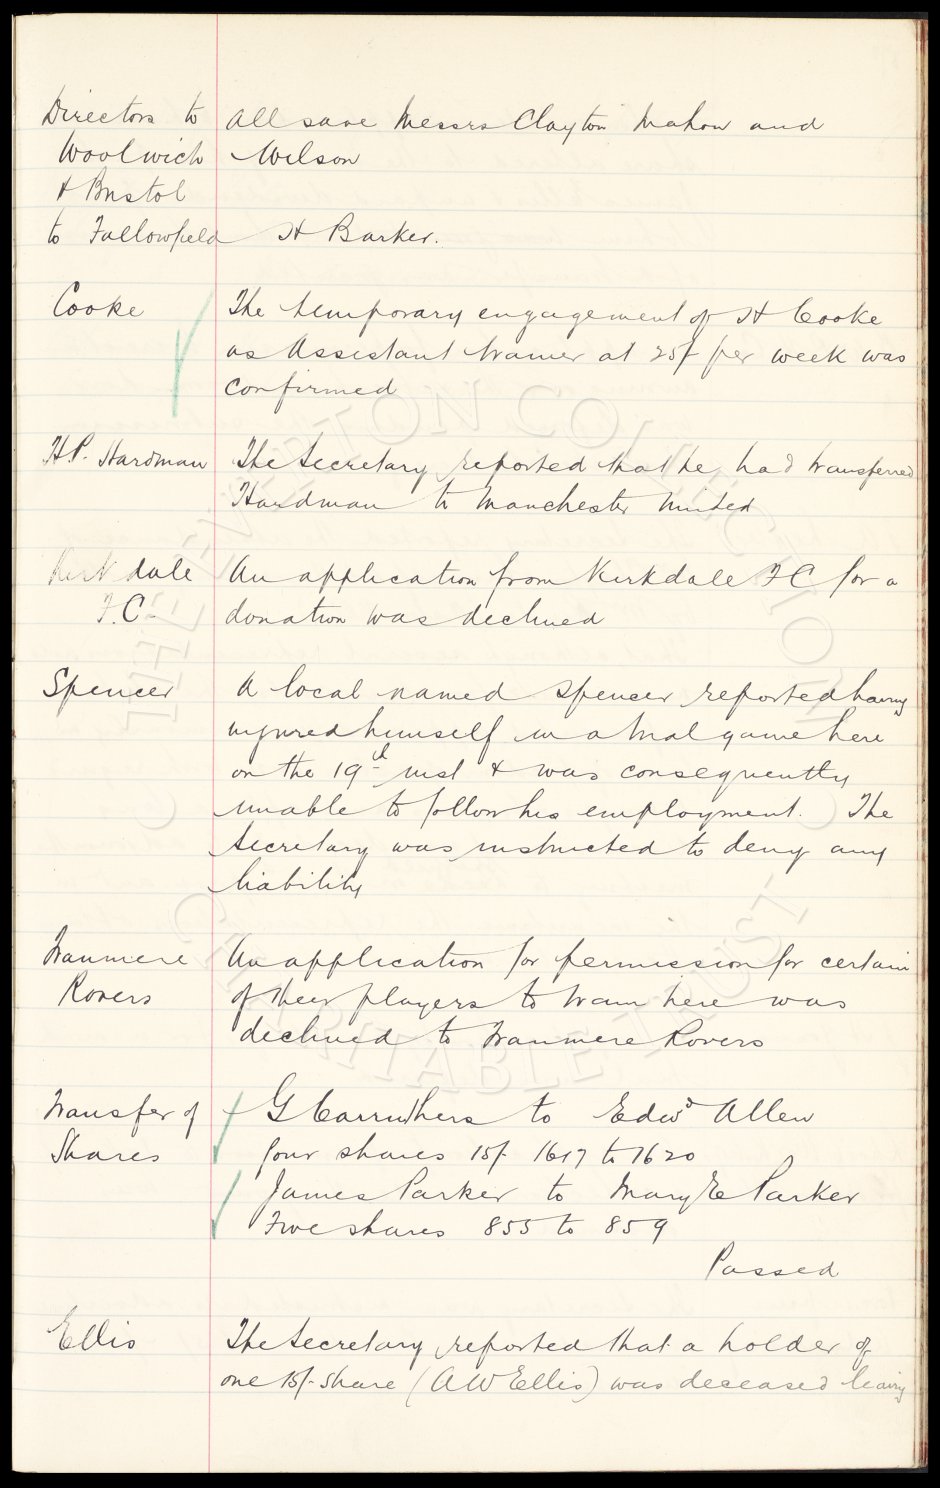 Directors to All save Messrs Clayton Mahon and
Woolwich Wilson
& Bristol
to Fallowfield H Barker.
Cooke The temporary engagement of H Cooke
as Assistant trainer at 25/- per week was
confirmed
H.P. Hardman The Secretary reported that he had transferred
Hardman to Manchester United
Kirkdale An application from Kirkdale F C for a
F.C. donation was declined
Spencer A local named Spencer reported having
injured himself in a trial game here
on the 19th inst & was consequently
unable to follow his employment. The
Secretary was instructed to deny any
liability
Tranmere An application for permission for certain
Rovers of their players to train here was
declined to Tranmere Rovers
Transfer of G Carruthers to Edwd Allen
Shares four shares 15/- 1617 to 1620
James Parker to Mary E Parker
Five shares 855 to 859
Passed
Ellis The Secretary reported that a holder of
one 15/- share (A W Ellis) was deceased leaving
THE EVERTON COLLECTION
CHARITABLE TRUST